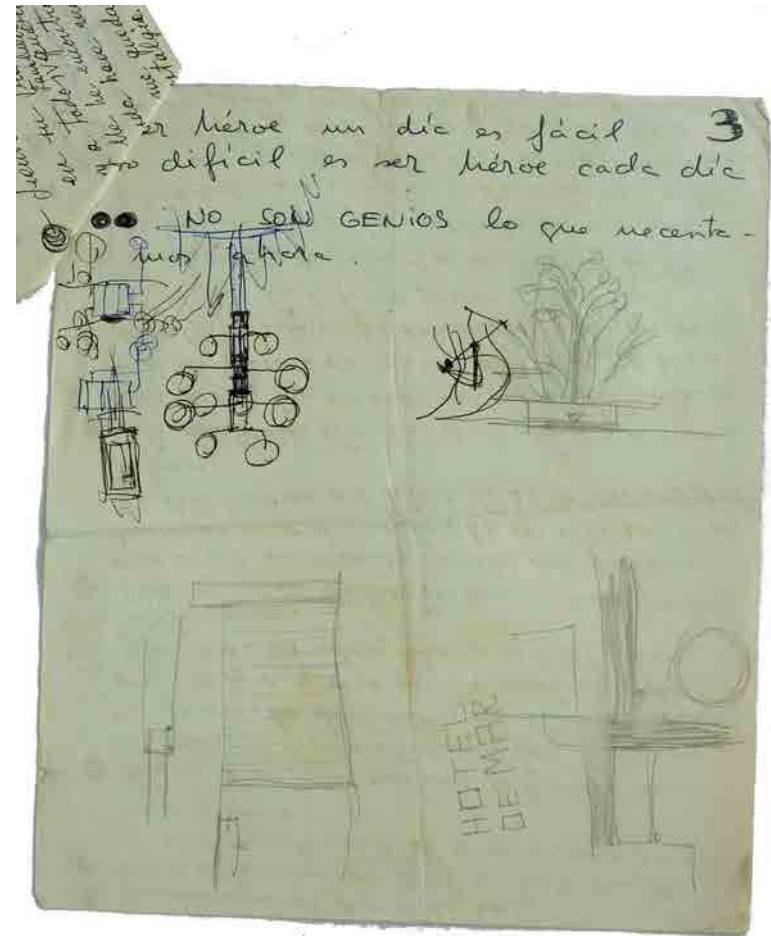 er héroe un día es fácil
3
difícil es ser héroe cada día
NO SON GENIOS lo que necesita-
mos ahora.
HOTEL
DE MAR